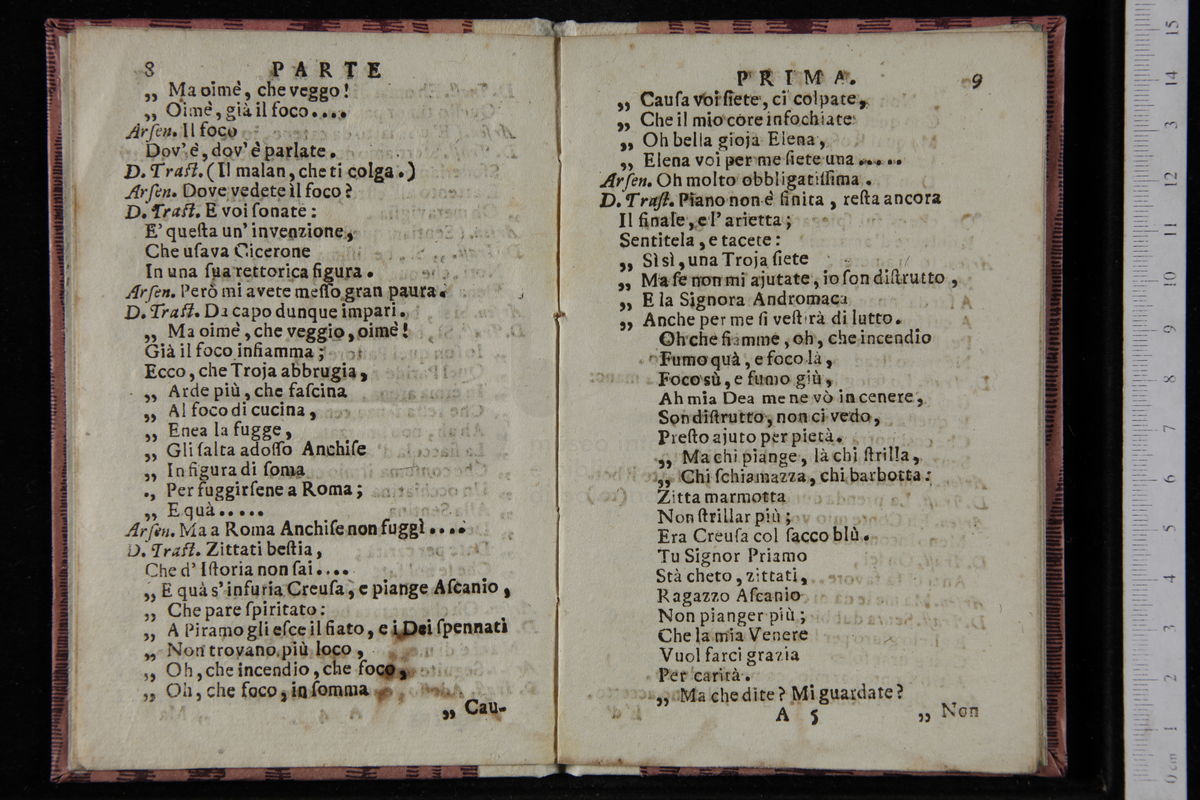 8 PARTE
„ Ma oimè, che veggo!
„ Oimè, già il foco....
Arſen. Il foco
Dov'è, dov'è parlate.
D. Traſt. (Il malan, che ti colga.)
Arſen. Dove vedete il foco?
D. Traſt. E voi ſonate:
E' queſta un' invenzione,
Che uſava Cicerone
In una ſua rettorica figura.
Arſen. Però mi avete meſſo gran paura.
D. Traſt. Da capo dunque impari.
„ Ma oimè, che veggio, oimè!
Già il foco infiamma;
Ecco, che Troja abbrugia,
„ Arde più, che faſcina
„ Al foco di cucina,
„ Enea la fugge,
„ Gli ſalta adoſſo Anchiſe
„ In figura di ſoma
„ Per fuggirſene a Roma;
„ E quà.....
Arſen. Ma a Roma Anchiſe non fuggì....
D. Traſt. Zittati beſtia,
Che d' Iſtoria non ſai....
„ E quà s' infuria Creuſa, e piange Aſcanio,
„ Che pare ſpiritato:
„ A Piramo gli eſce il fiato, e i Dei ſpennati
„ Non trovano più loco,
„ Oh, che incendio, che foco,
„ Oh, che foco, in ſomma
„ Cau-
PRIMA. 9
„ Cauſa voi ſiete, ci colpate,
„ Che il mio core infochiate
„ Oh bella gioja Elena,
„ Elena voi per me ſiete una .....
Arſen. Oh molto obbligatiſſima.
D. Traſt. Piano non è finita, reſta ancora
Il finale, e l' arietta;
Sentitela, e tacete:
„ Sì sì, una Troja ſiete
„ Ma ſe non mi ajutate, io ſon diſtrutto,
„ E la Signora Andromaca
„ Anche per me ſi veſtirà di lutto.
Oh che fiamme, oh, che incendio
Fumo quà, e foco là,
Foco sù, e fumo giù,
Ah mia Dea me ne vò in cenere,
Son diſtrutto, non ci vedo,
Preſto ajuto per pietà.
„ Ma chi piange, là chi ſtrilla,
„ Chi ſchiamazza, chi barbotta:
Zitta marmotta
Non ſtrillar più;
Era Creuſa col ſacco blù.
Tu Signor Priamo
Stà cheto, zittati,
Ragazzo Aſcanio
Non pianger più;
Che la mia Venere
Vuol farci grazia
Per carità.
„ Ma che dite? Mi guardate?
A 5 „ Non